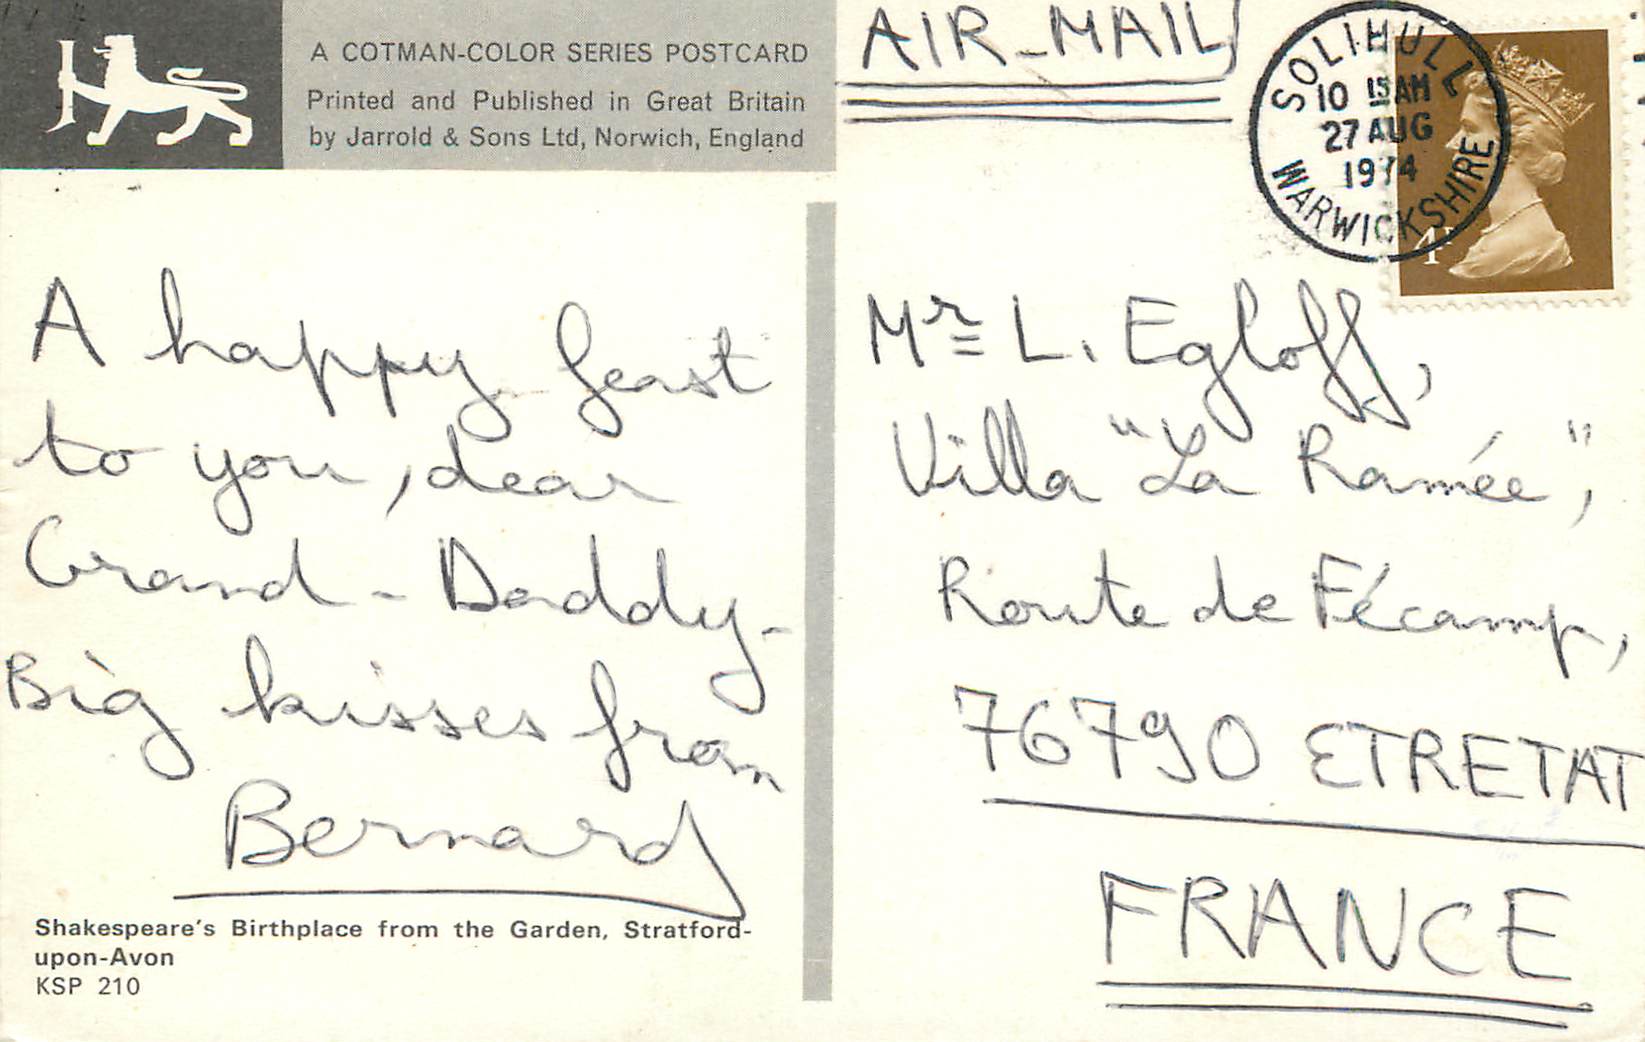 A COTMAN-COLOR SERIES POSTCARD
Printed and Published in Great Britain
by Jarrold & Sons Ltd, Norwich, England
AIR-MAIL
SOLIHULL
10 15AM
27 AUG
1974
WARWICKSHIRE
4P
A happy feast
to you, dear
Grand-Daddy-
Big kisses from
Bernard
Shakespeare's Birthplace from the Garden, Stratford-
upon-Avon
KSP 210
Mr L. Egloff,
Villa "La Ramée",
Route de Fécamp,
76790 ETRETAT
FRANCE